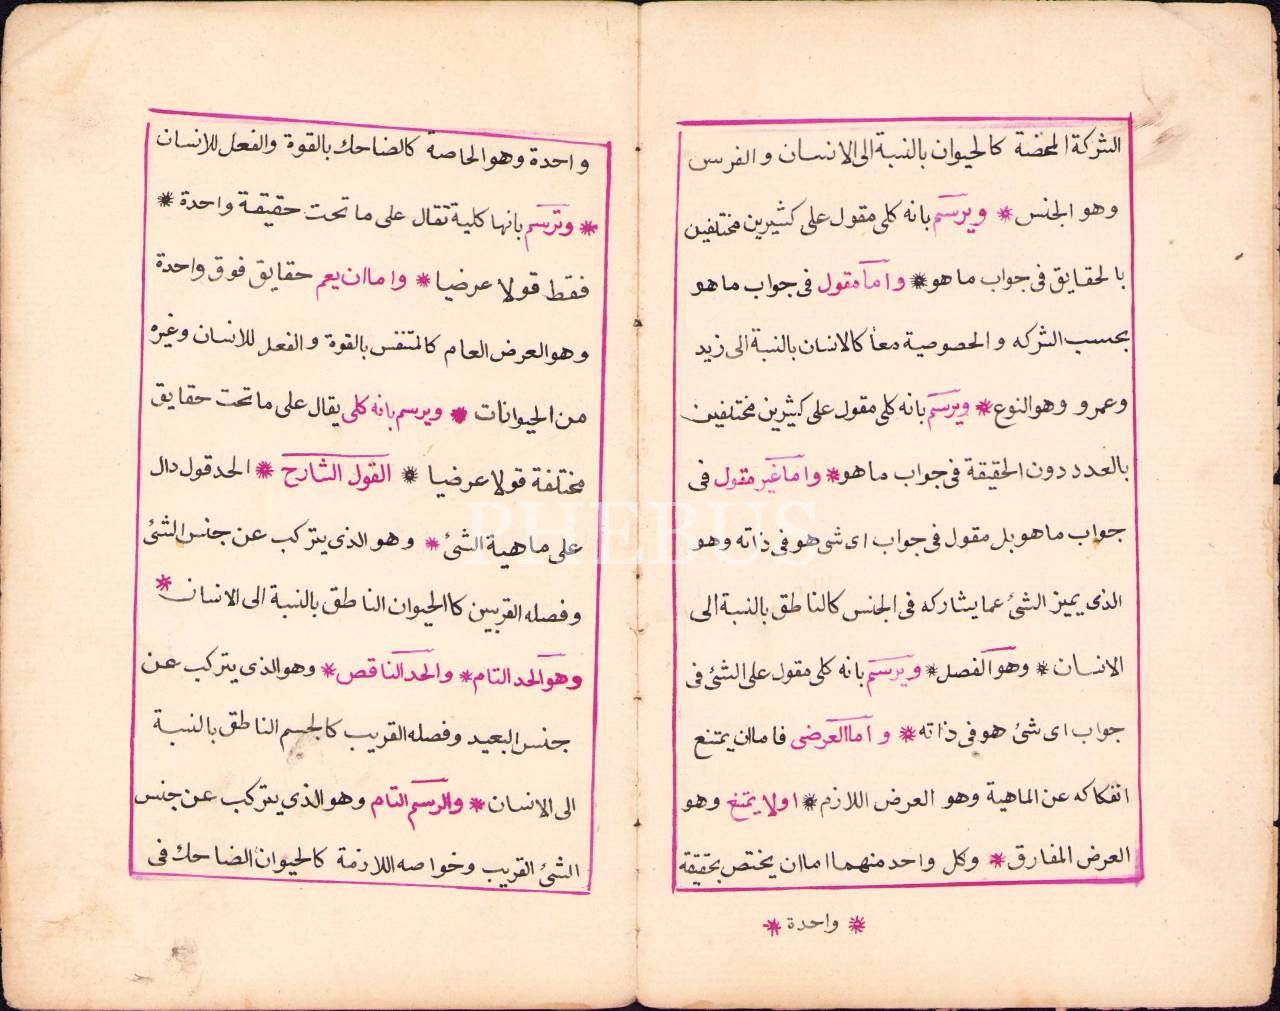 الشركة المحضة كالحيوان بالنسبة الى الانسان و الفرس
وهو الجنس * ويرسم بانه كلى مقول على كثيرين مختلفين
بالحقايق فى جواب ما هو * واما مقول فى جواب ما هو
بحسب الشركه و الخصوصية معا كالانسان بالنسبة الى زيد
وعمرو وهو النوع * ويرسم بانه كلى مقول على كثيرين مختلفين
بالعدد دون الحقيقة فى جواب ما هو * واما غير مقول فى
جواب ما هو بل مقول فى جواب اى شى هو فى ذاته وهو
الذى يميز الشئ عما يشاركه فى الجنس كالناطق بالنسبة الى
الانسان * وهو الفصل * ويرسم بانه كلى مقول على الشئ فى
جواب اى شئ هو فى ذاته * واما العرضى فاما ان يمتنع
انفكاكه عن الماهية وهو العرض اللازم * اولا يمتنع وهو
العرض المفارق * وكل واحد منهما اما ان يختص بحقيقة
* واحدة *
واحدة وهو الخاصة كالضاحك بالقوة والفعل للانسان
* وترسم بانها كلية تقال على ما تحت حقيقة واحدة *
فقط قولا عرضيا * واما ان يعم حقايق فوق واحدة
وهو العرض العام كالمتنفس بالقوة والفعل للانسان وغيره
من الحيوانات * ويرسم بانه كلى يقال على ما تحت حقايق
مختلفة قولا عرضيا * القول الشارح * الحد قول دال
على ماهية الشئ * وهو الذى يتركب عن جنس الشئ
وفصله القريبين كالحيوان الناطق بالنسبة الى الانسان *
وهو الحد التام * والحد الناقص * وهو الذى يتركب عن
جنس البعيد وفصله القريب كالجسم الناطق بالنسبة
الى الانسان * والرسم التام وهو الذى يتركب عن جنس
الشئ القريب وخواصه اللازمة كالحيوان الضاحك فى
PHEBUS